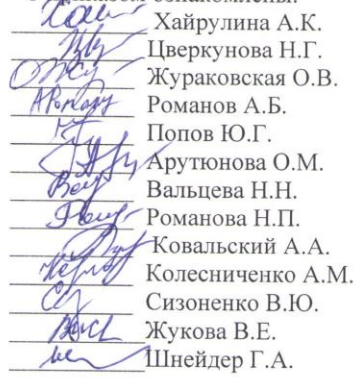 ознакомлены.
Хайрулина А.К.
Цверкунова Н.Г.
Жураковская О.В.
Романов А.Б.
Попов Ю.Г.
Арутюнова О.М.
Вальцева Н.Н.
Романова Н.П.
Ковальский А.А.
Колесниченко А.М.
Сизоненко В.Ю.
Жукова В.Е.
Шнейдер Г.А.